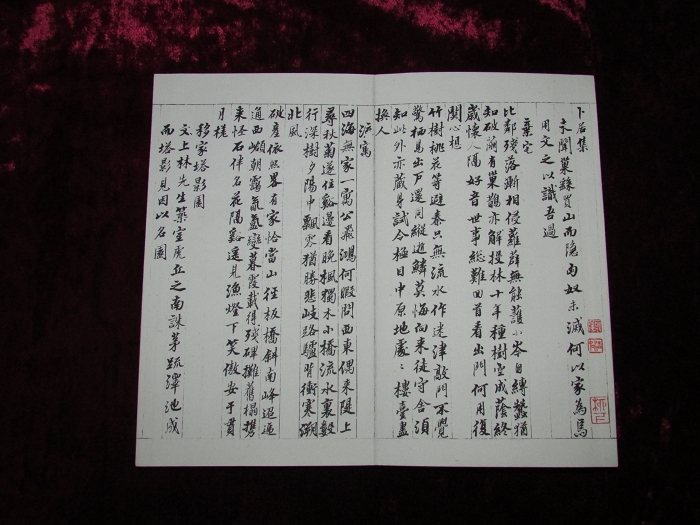 卜居集
未聞巢繇買山而隱匈奴未滅何以家為馬
用文之以識吾過
棄宅
比鄰殘落漸相侵薙蘚無能護小岑自縛蠶猶
知破繭有巢鵲亦解擇林十年種樹空成蔭終
歲懷人隔好音世事総難回首看出門何用復
関心想
竹樹桃花等避秦只無流水作迷津敲門不覺
驚栖易出戶還同縱逝鱗莫悔向來徒守舍須
知此外亦藏身試令極目中原地處處樓臺盡
換人
寓
四海無家一寓公飛鴻何暇問西東偶來隄上
尋秋菊遂住谿邊看晚楓獨木小橋流水裏數
行深樹夕陽中飄零猶勝悲歧路驢背衝寒溯
北風
破產依然畧有家恰當山徑板橋斜南峰迢遞
通西崦朝靄氤氳變暮霞載得殘碑攤舊榻携
來怪石伴名花隔谿遙見漁燈下笑傲安于貫
月槎
移家塔影園
文上林先生築室虎丘之南誅茅疏澤池成
而塔影見因以名園